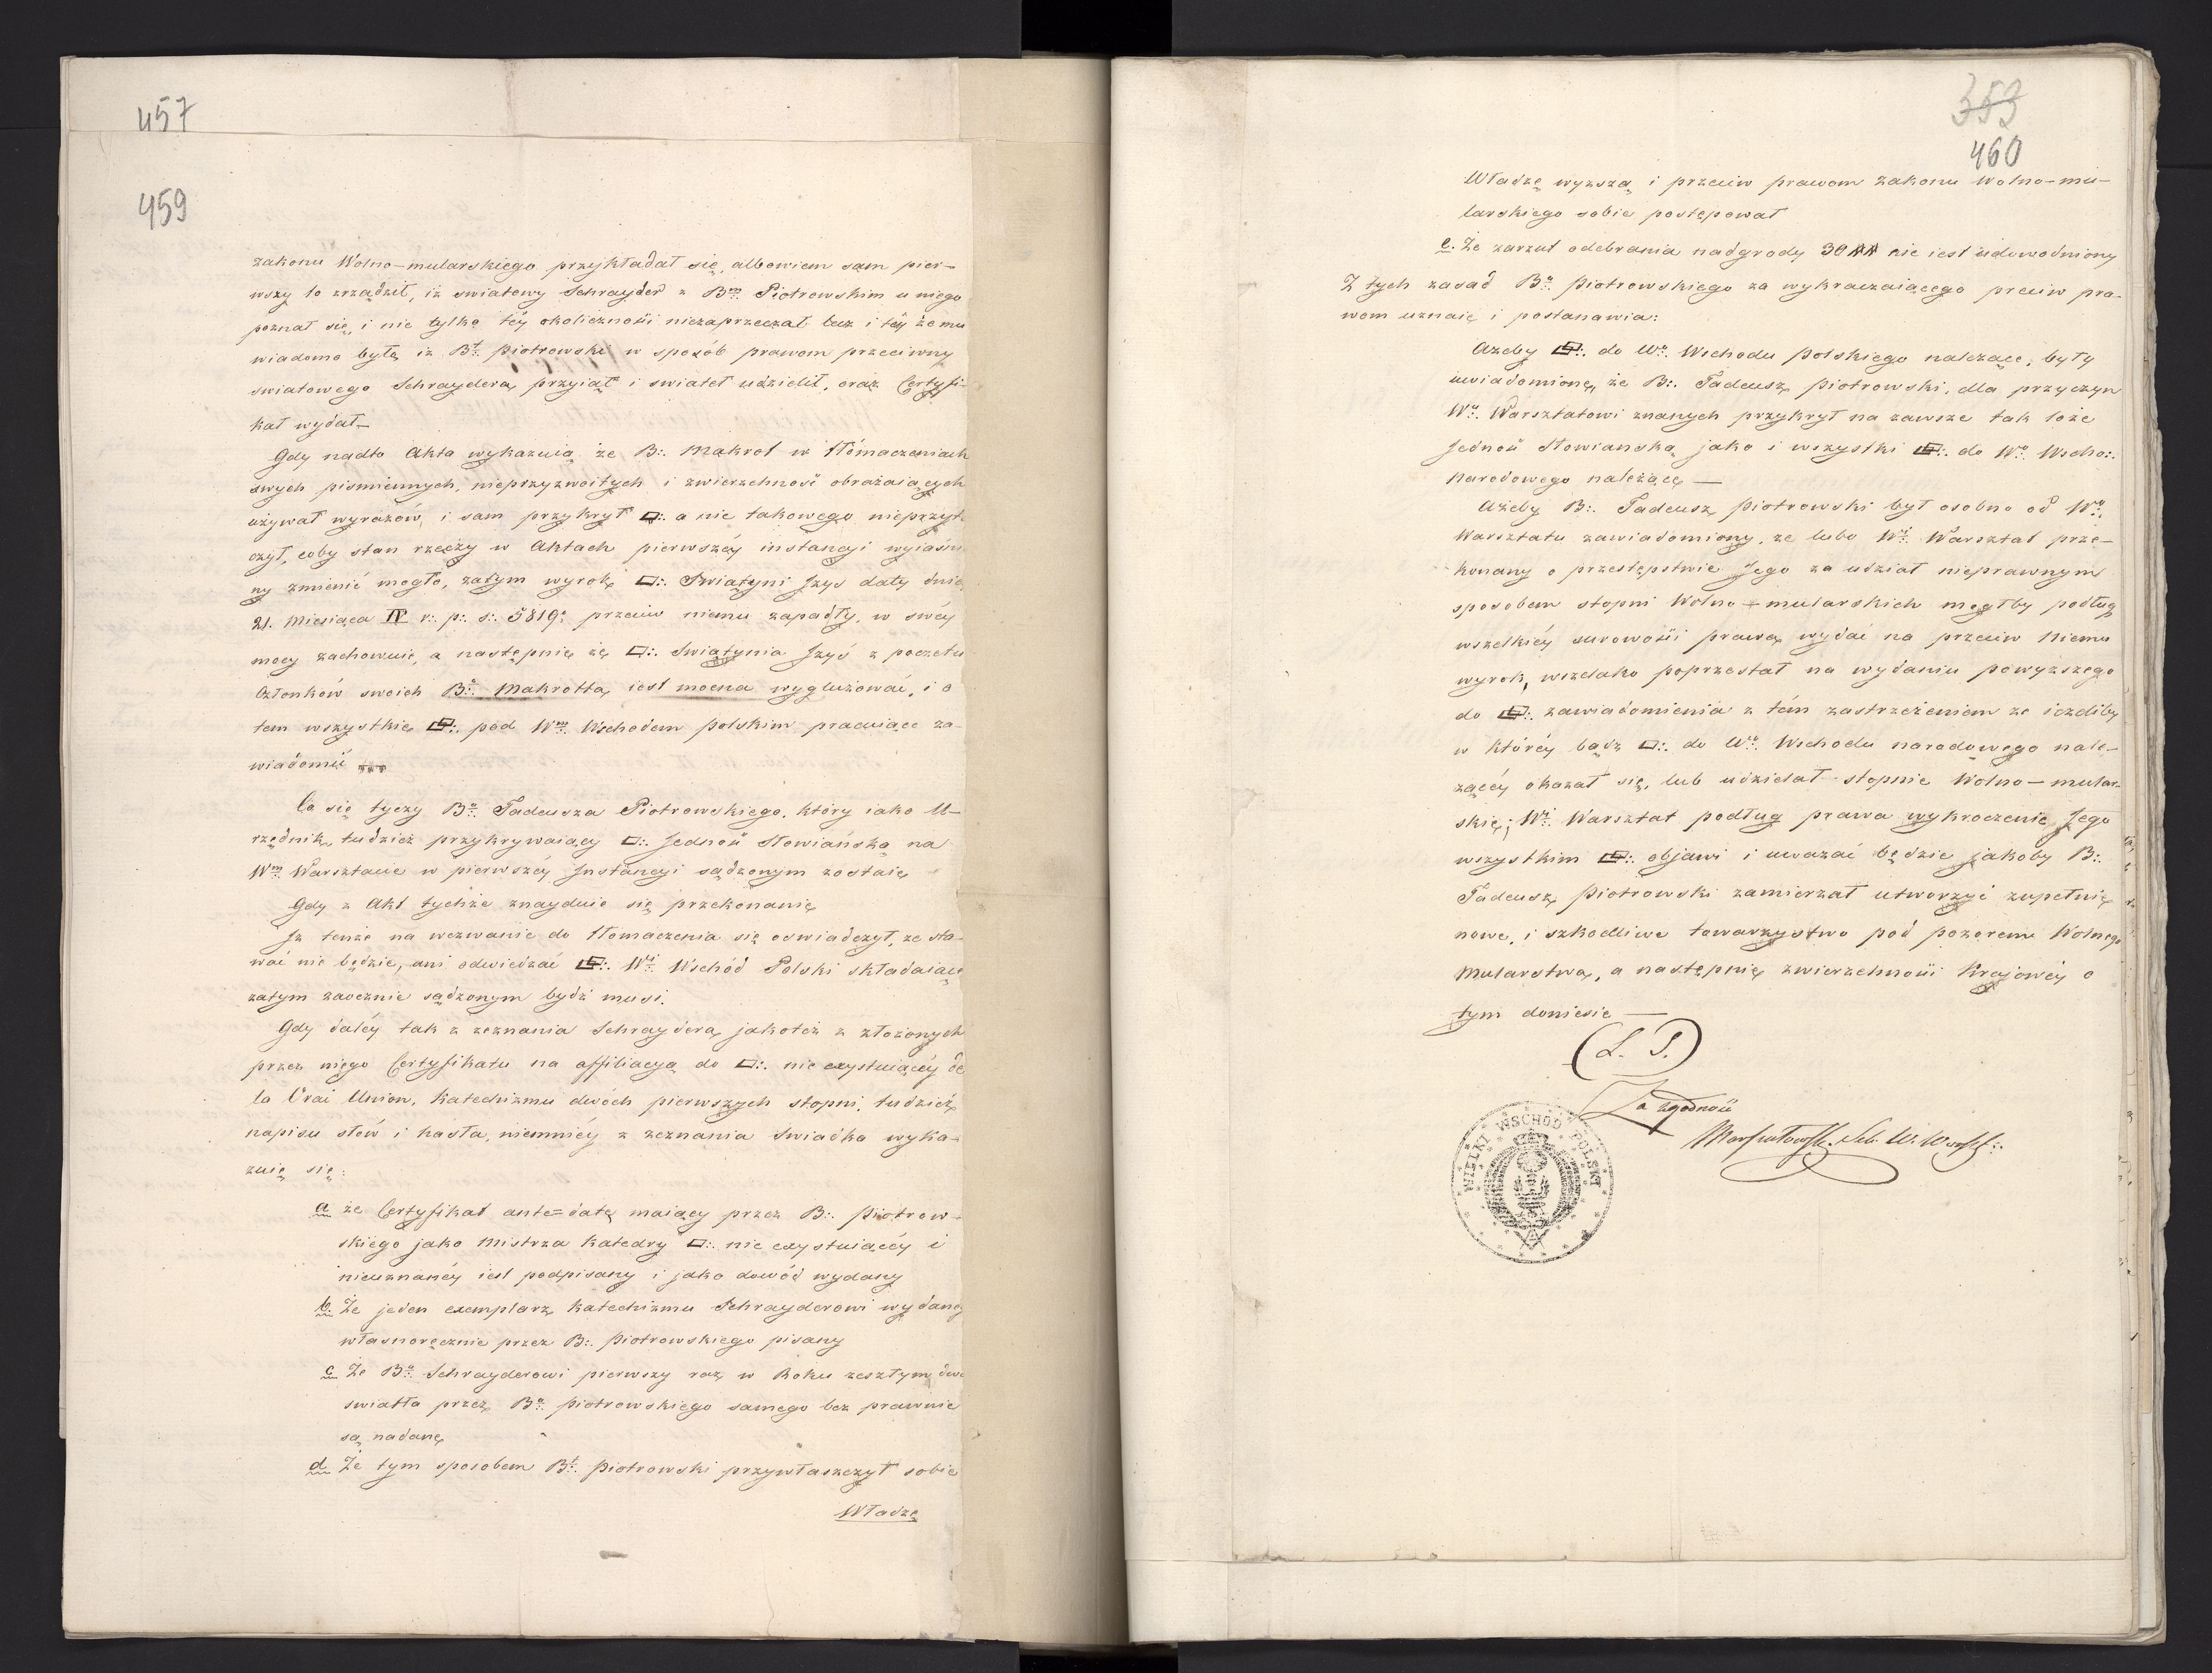 457
459
zakonu Wolno-mularskiego przykładał się, albowiem sam pier-
wszy to zrządził, iż swiatowy Schrayder z Bm∴ Piotrowskim u niego
poznał się, i nie tylko téy okoliczności niezaprzeczał lecz i téy że mu
wiadomo było, iż Bt∴ Piotrowski w sposób prawom przeciwny
swiatowego Schraydera, przyiął i swiateł udzielił, oraz Certyfi-
kat wydał—
Gdy nadto Akta wykazuią że B∴ Makrot w tłómaczeniach
swych pismiennych, nieprzyzwoitych i zwierzchność obrażaiących
używał wyrazów, i sam przykrył ▭∴ a nic takowego nieprzyto
czył, coby stan rzeczy w Aktach pierwszéy instancyi wyiaśnio
ny zmienić mogło, zatym wyrok, ▭∴ Swiątyni Izys daty dnia
21. Miesiąca IV r∴ p∴ s∴ 5819o przeciw niemu zapadły, w swéy
mocy zachowuie, a następnie że ▭∴ Swiątynia Izys z pocztu
Członków swoich Ba∴ Makrotta, iest mocna wygluzować, i o
tem wszystkie ▭∴ pod Wm∴ Wschodem Polskim pracuiące za-
wiadomić
Co się tyczy Ba∴ Tadeusza Piotrowskiego, który iako U-
rzędnik, tudzież przykrywaiący ▭∴ Jedność Słowiańską na
Wm∴ Warsztacie w pierwszéy Instancyi sądzonym zostaie,
Gdy z Akt tychże znayduie się przekonanie,
Iż tenże na wezwanie do tłomaczenia się oswiadczył, że sta-
wać nie będzie, ani odwiedzać ▭∴ Wi∴ Wschód Polski składaiące
zatym zaocznie sądzonym bydź musi.
Gdy daléy tak z zeznania Schraydera, jakoteż z złożonych
przez niego Certyfikatu na affiliacyą do ▭∴ nie exystuiącéy de
la Vrai Union, Katechizmu dwóch pierwszych stopni, tudzież
napisu słów i hasła, niemniéy z zeznania Swiadka wyka-
zuie się:
a że Certyfikat ante=datę maiący przez B∴ Piotrow-
skiego jako Mistrza Katedry ▭∴ nie exystuiącéy i
nieuznanéy iest podpisany i jako dowód wydany
b. Że jeden exemplarz Katechizmu Schrayderowi wydany
własnoręcznie przez B∴ Piotrowskiego pisany
c Że Bu∴ Schrayderowi pierwszy raz w Roku zeszłym dwa
swiatła przez Ba∴ Piotrowskiego samego bez prawnie
są nadane,
d Że tym sposobem Bt∴ Piotrowski przywłaszczył sobie
Władzę
353
460
Władzę wyzszą i przeciw prawom zakonu Wolno-mu-
larskiego sobie postępował
e. Że zarzut odebrania nadgrody 30 ## nie iest udowodniony
Z tych zasad Ba∴ Piotrowskiego za wykraczaiącego przeciw pra-
wom uznaie i postanawia:
Ażeby ▭∴ do Wo∴ Wschodu Polskiego należące, były
uwiadomione, że B∴ Tadeusz Piotrowski, dla przyczyn
Wu∴ Warsztatowi znanych przykrył na zawsze tak loże
Jedność Słowianską jako i wszystki ▭∴ do Wo∴ Wscho∴
Narodowego należące —
Ażeby B∴ Tadeusz Piotrowski był osobno od Wo∴
Warsztatu zawiadomiony, że lubo Wi∴ Warsztat prze-
konany o przestępstwie Jego za udział nieprawnym
sposobem stopni Wolno-mularskich mogłby podług
wszelkiéy surowości prawa, wydać na przeciw Niemu
wyrok, wszelako poprzestał na wydaniu powyższego
do ▭∴ zawiadomienia z tém zastrzeżeniem że ieżeliby
w któréy bądź ▭∴ do Wo∴ Wschodu narodowego nale-
żącéy okazał się, lub udzielał stopnie Wolno-mular-
skie, Wi∴ Warsztat podług prawa wykroczenie Jego
wszystkim ▭∴ objawi i uważać będzie jakoby B∴
Tadeusz Piotrowski zamierzał utworzyć zupełnie
nowe, i szkodliwe towarzystwo pod pozorem Wolnego
Mularstwa, a następnie zwierzchności Krajowéy o
tym doniesie —
(L. S.)
Za zgodność
WIELKI WSCHÓD POLSKI